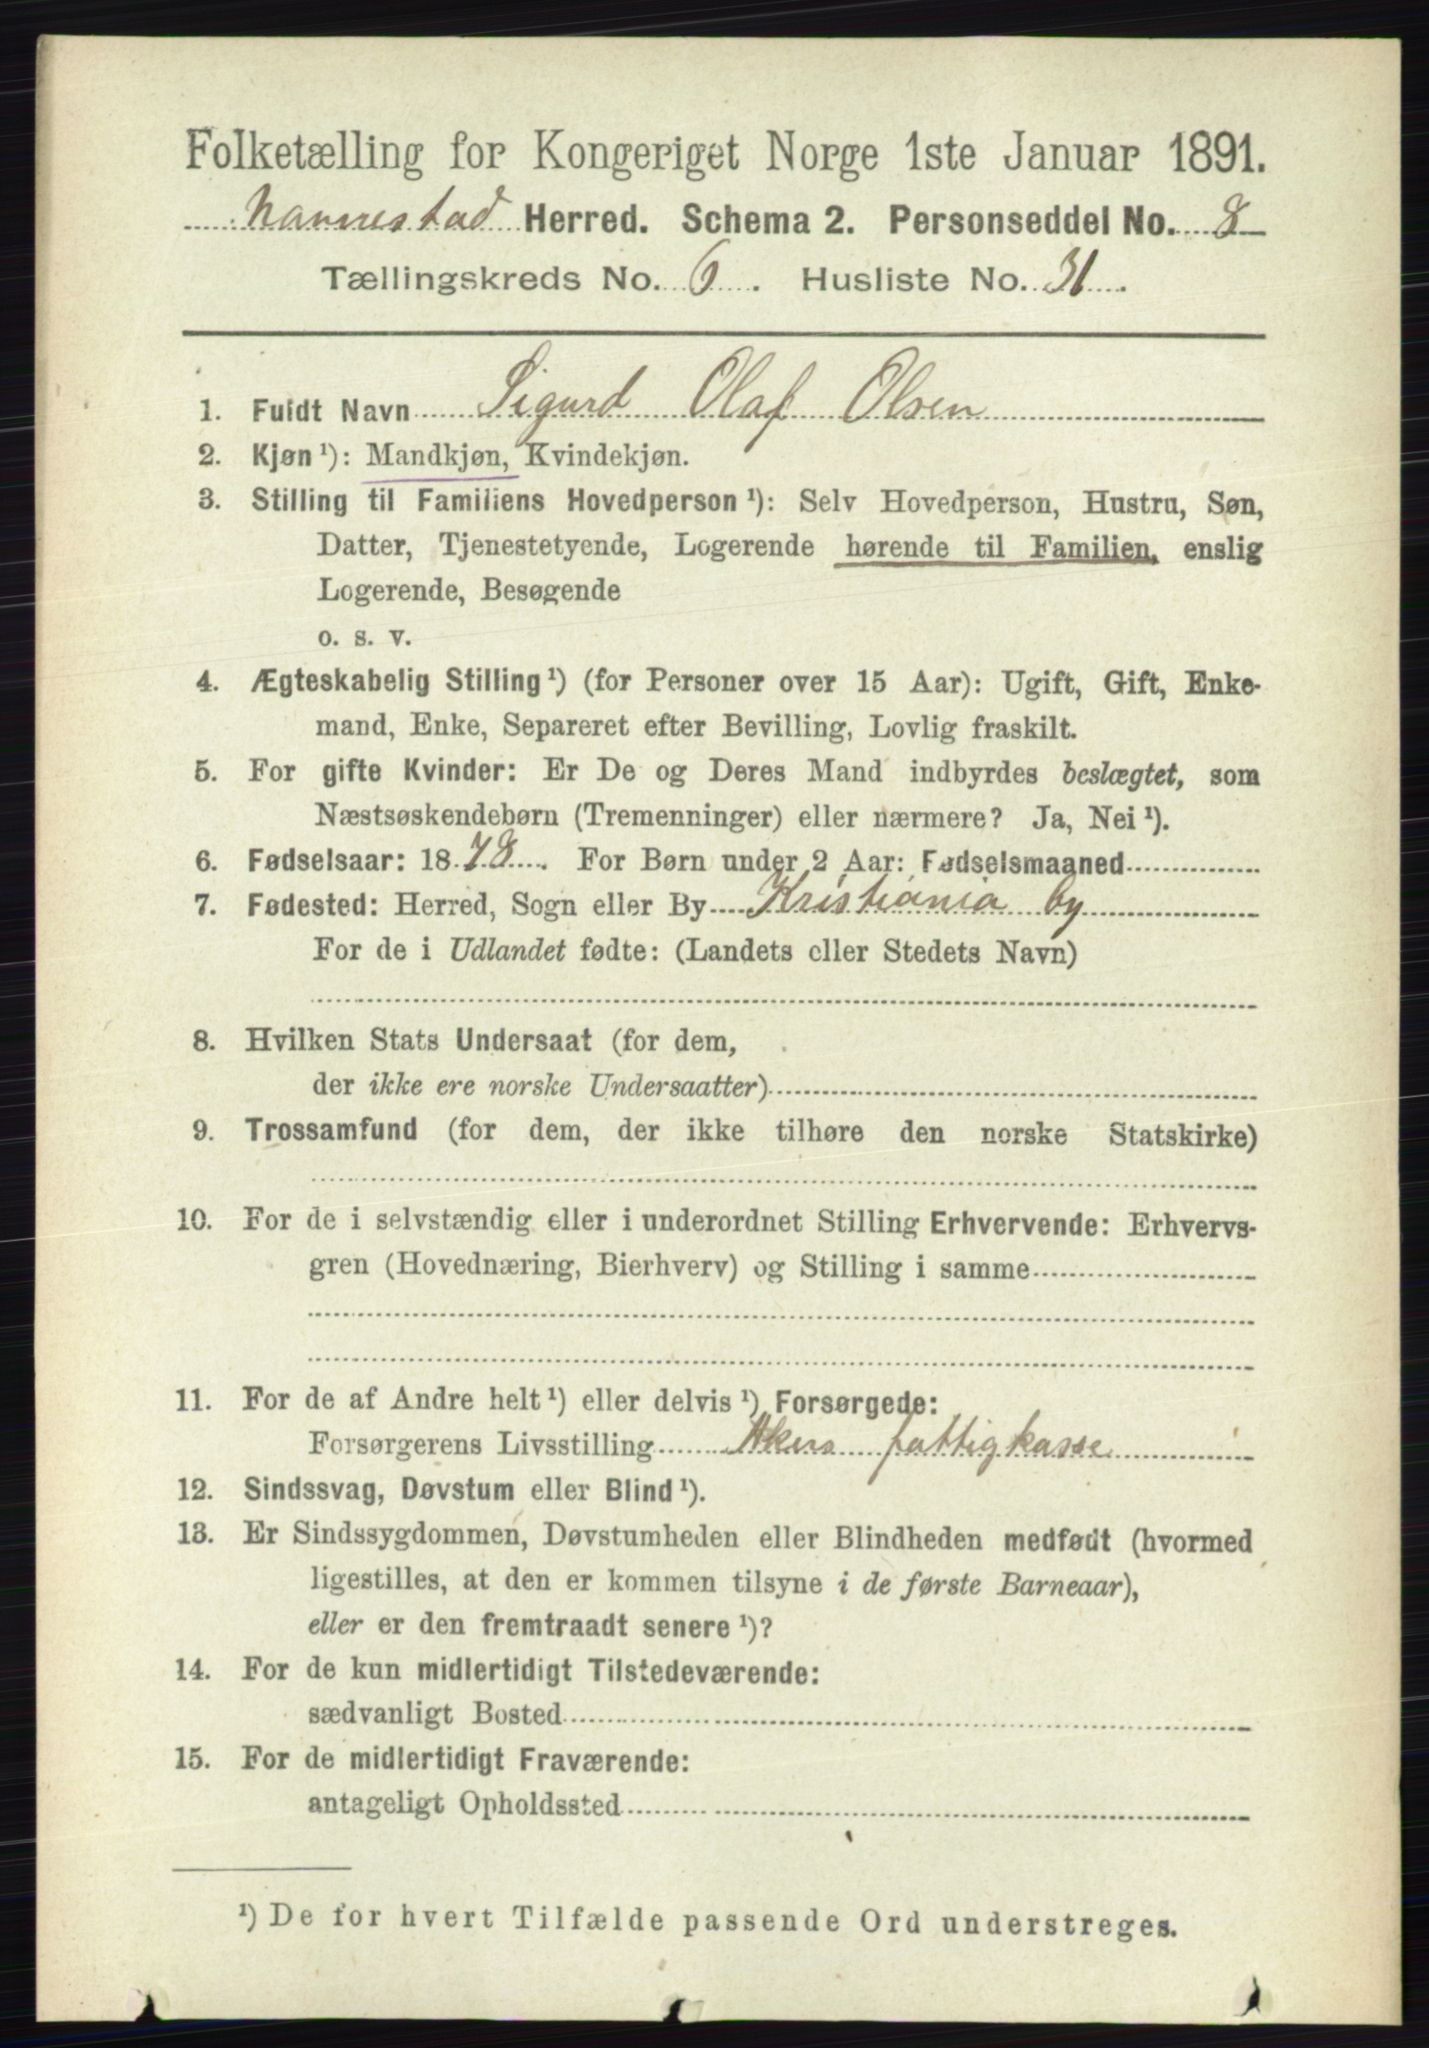 Folketælling for Kongeriget Norge 1ste Januar 1891.
Nannestad Herred. Schema 2. Personseddel No. 8
Tællingskreds No. 6. Husliste No. 31.
1. Fuldt Navn Sigurd Olaf Olsen
2. Kjøn ¹): Mandkjøn, Kvindekjøn.
3. Stilling til Familiens Hovedperson ¹): Selv Hovedperson, Hustru, Søn,
Datter, Tjenestetyende, Logerende hørende til Familien, enslig
Logerende, Besøgende
o. s. v.
4. Ægteskabelig Stilling ¹) (for Personer over 15 Aar): Ugift, Gift, Enke-
mand, Enke, Separeret efter Bevilling, Lovlig fraskilt.
5. For gifte Kvinder: Er De og Deres Mand indbyrdes beslægtet, som
Næstsøskendebørn (Tremenninger) eller nærmere? Ja, Nei ¹).
6. Fødselsaar: 1878. For Børn under 2 Aar: Fødselsmaaned
7. Fødested: Herred, Sogn eller By Kristiania by
For de i Udlandet fødte: (Landets eller Stedets Navn)
8. Hvilken Stats Undersaat (for dem,
der ikke ere norske Undersaatter)
9. Trossamfund (for dem, der ikke tilhøre den norske Statskirke)
10. For de i selvstændig eller i underordnet Stilling Erhvervende: Erhvervs-
gren (Hovednæring, Bierhverv) og Stilling i samme
11. For de af Andre helt ¹) eller delvis ¹) Forsørgede:
Forsørgerens Livsstilling Akers fattigkasse
12. Sindssvag, Døvstum eller Blind ¹).
13. Er Sindssygdommen, Døvstumheden eller Blindheden medfødt (hvormed
ligestilles, at den er kommen tilsyne i de første Barneaar),
eller er den fremtraadt senere ¹)?
14. For de kun midlertidigt Tilstedeværende:
sædvanligt Bosted
15. For de midlertidigt Fraværende:
antageligt Opholdssted
¹) De for hvert Tilfælde passende Ord understreges.